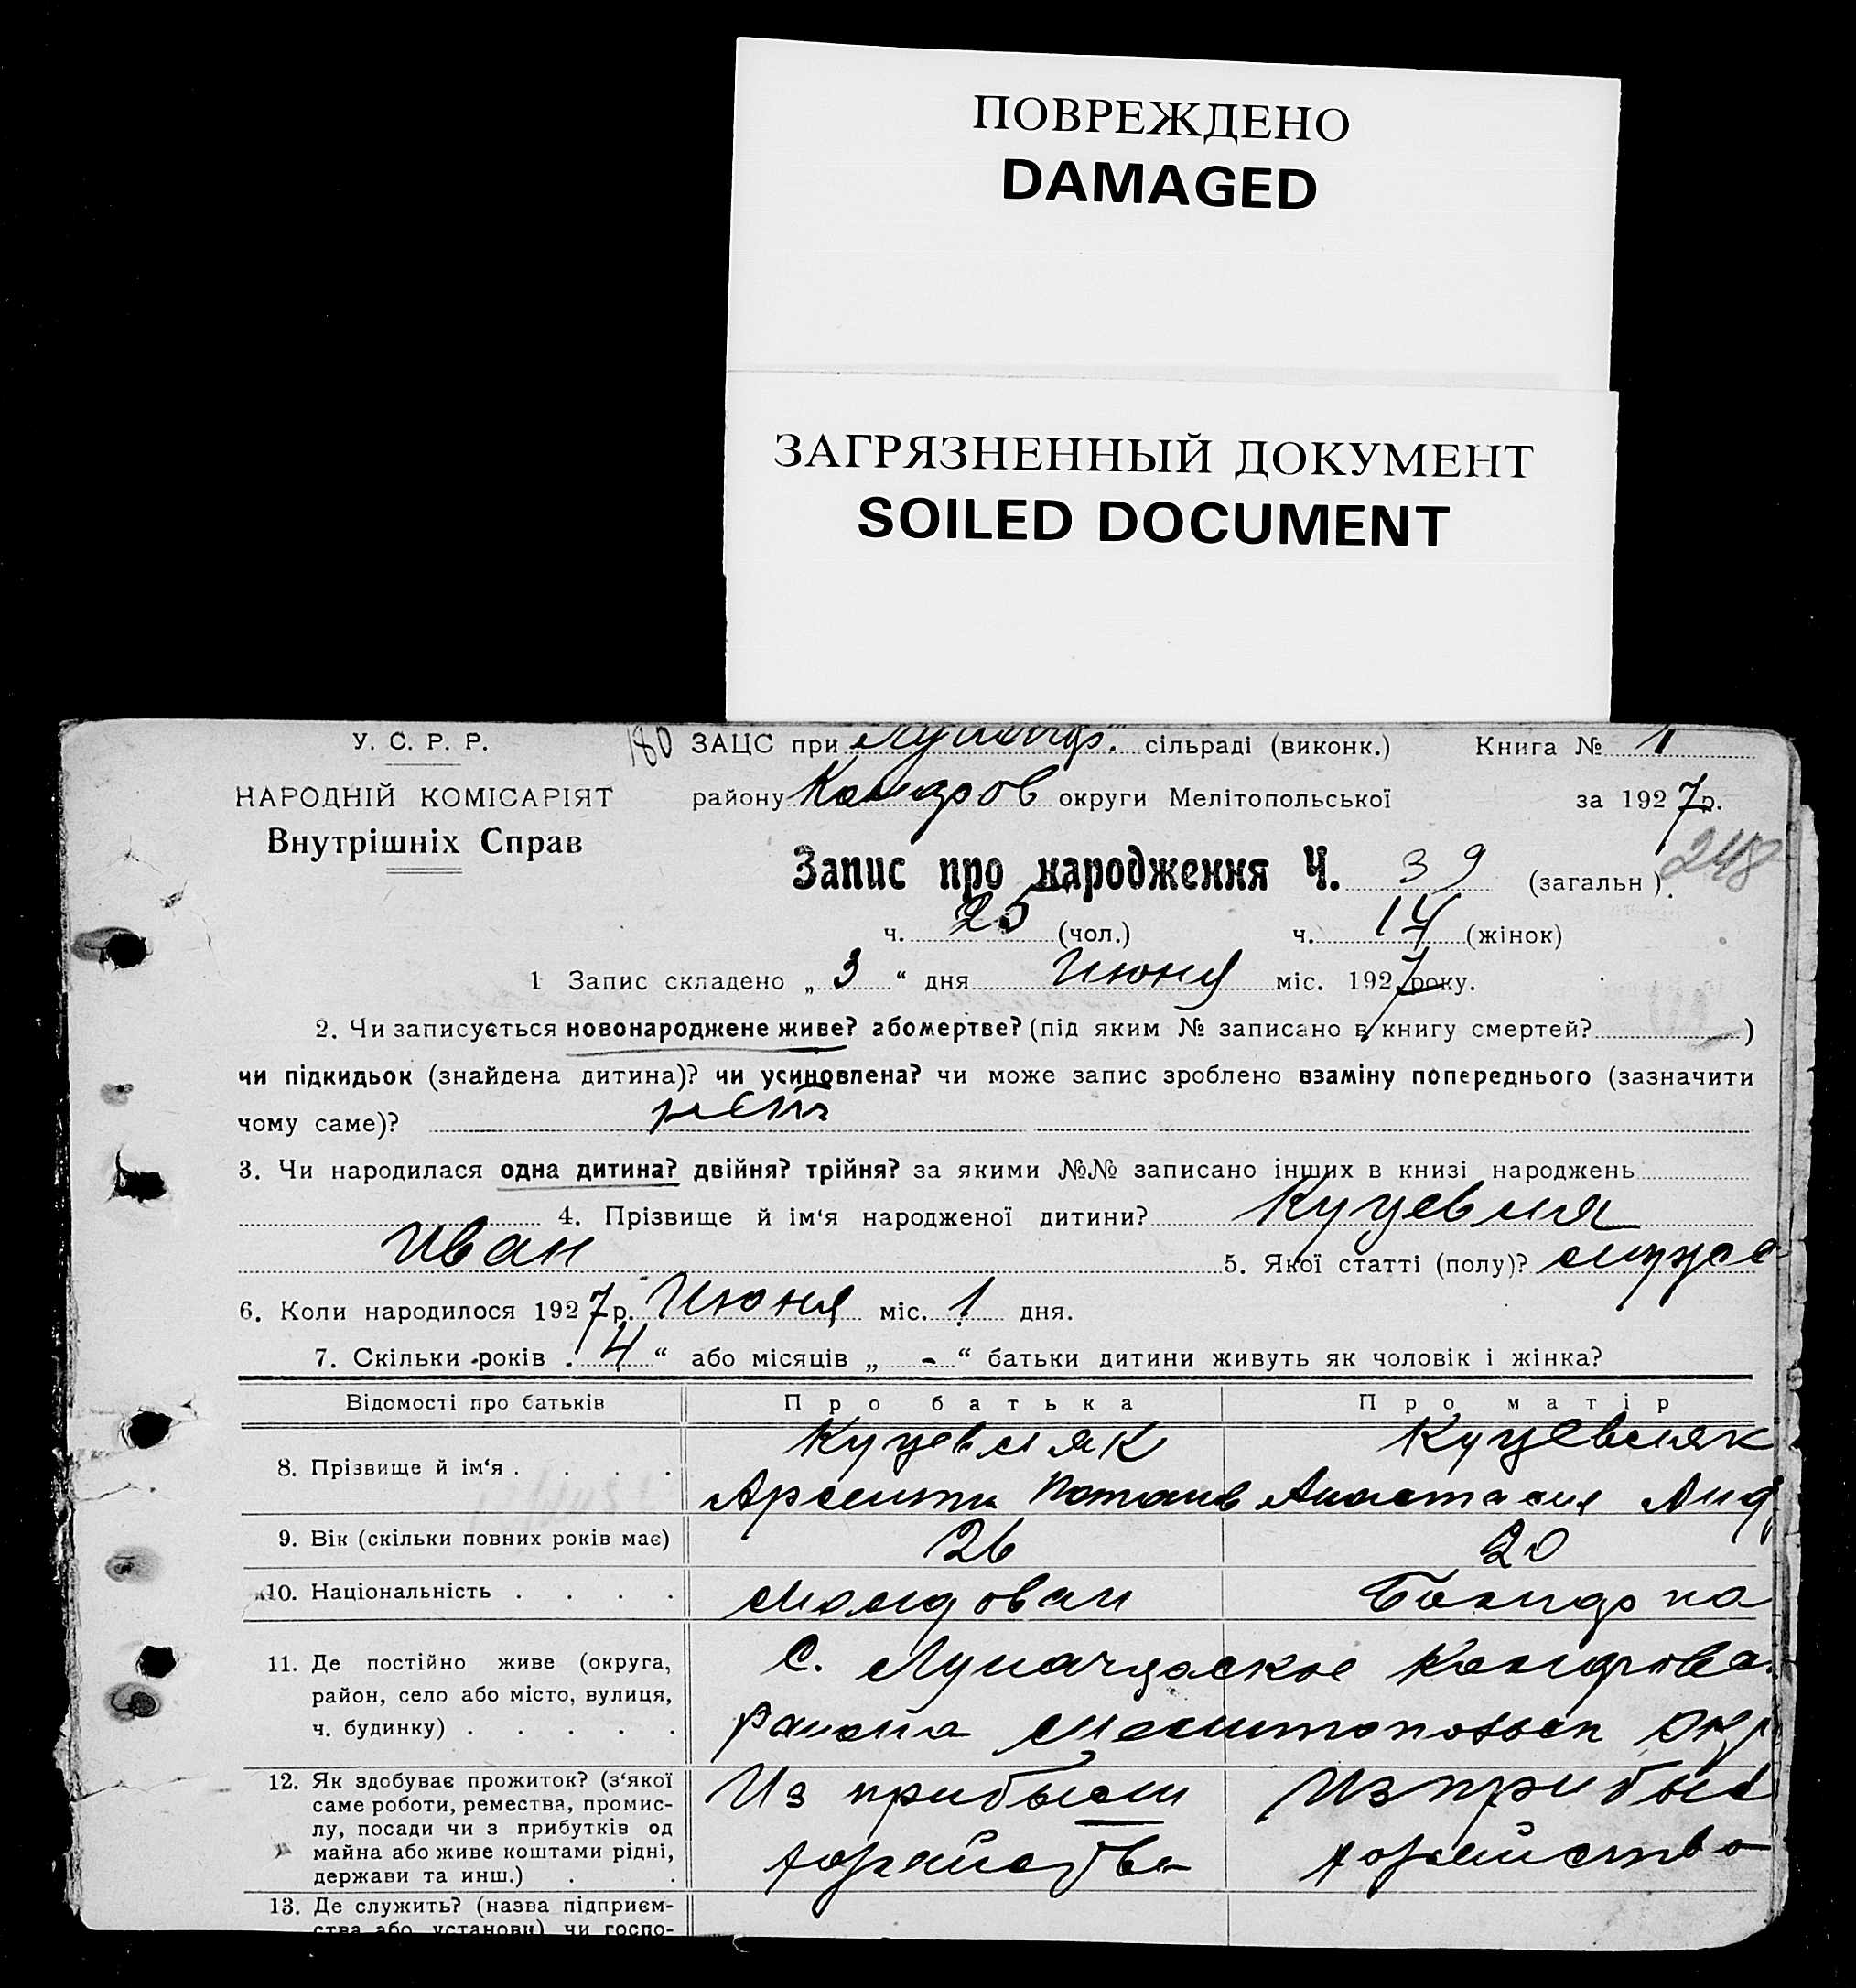 ПОВРЕЖДЕНО
DAMAGED
ЗАГРЯЗНЕННЫЙ ДОКУМЕНТ
SOILED DOCUMENT
У. С. Р. Р.
180 ЗАЦС при сільраді (виконк.) Книга № 1
НАРОДНІЙ КОМІСАРІЯТ
району округи Мелітопольської за 1927 р.
Внутрішніх Справ
248
Запис про народження Ч. 39 (загальн).
ч. 25 (чол.) ч. 14 (жінок)
1 Запис складено „ 3 “ дня Июня міс. 1927 року.
2. Чи записується новонароджене живе? або мертве? (під яким № записано в книгу смертей? )
чи підкидьок (знайдена дитина)? чи усиновлена? чи може запис зроблено взаміну попереднього (зазначити
чому саме)? нет
3. Чи народилася одна дитина? двійня? трійня? за якими №№ записано інших в книзі народжень
4. Прізвище й ім‘я народженої дитини?
Иван 5. Якої статті (полу)?
6. Коли народилося 1927 р. Июня міс. 1 дня.
7. Скільки років 4 “ або місяців „ - “ батьки дитини живуть як чоловік і жінка?
Відомості про батьків Про батька Про матір
8. Прізвище й ім‘я . . . .
Анастасия
9. Вік (скільки повних років має) 26 20
10. Національність . . . . Молдован
11. Де постійно живе (округа,
район, село або місто, вулиця,
ч. будинку) . . . . .
С. Луначарское
района
12. Як здобуває прожиток? (з‘якої
саме роботи, ремества, промис-
лу, посади чи з прибутків од
майна або живе коштами рідні,
держави та инш.) . .
Из прибыли Из прибыл
13. Де служить? (назва підприєм-
ства або установи) чи госпо-